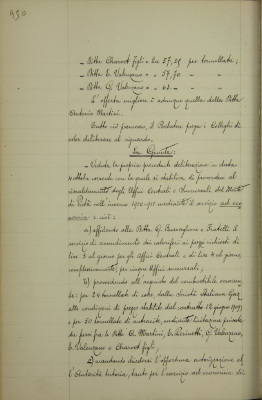 450
- Ditta Charvet figli - L. 57,25 per tonnellata;
- Ditta E. Valenzano - " 57,70 "
- Ditta G. Valenzano - "
L'offerta migliore è adunque quella della Ditta
Antonio Martini.
Tutto ciò premesso, il Relatore prega i Colleghi di
voler deliberare al riguardo.
La Giunta:
Veduta la propria precedente deliberazione in data
colla quale si stabilì di provvedere al
riscaldamento degli Uffici Centrali e Succursali del Monte
di Pietà nell'inverno 1910-911 mediante il servizio ad eco
nomia e cioè:
a) affidando alla Ditta G. e Fratelli il
servizio di accendimento dei caloriferi ai prezzi richiesti di
lire 3 al giorno per gli Uffici Centrali e di lire 4 al giorno,
complessivamente, per cinque Uffici succursali;
b) provvedendo all'acquisto del combustibile occorren
te: per 20 tonnellate di coke dalla Società Italiana Gaz
alle condizioni di prezzo stabilite dal contratto 16 giugno 1909;
e per 50 tonnellate di antracite, mediante licitazione privata
da farsi fra le Ditte A. Martini, G. Valenzano,
E. Valenzano e Charvet figli;
c) mandando chiedersi l'opportuna autorizzazione al
l'Autorità tutoria, tanto per l'esercizio ad economia di